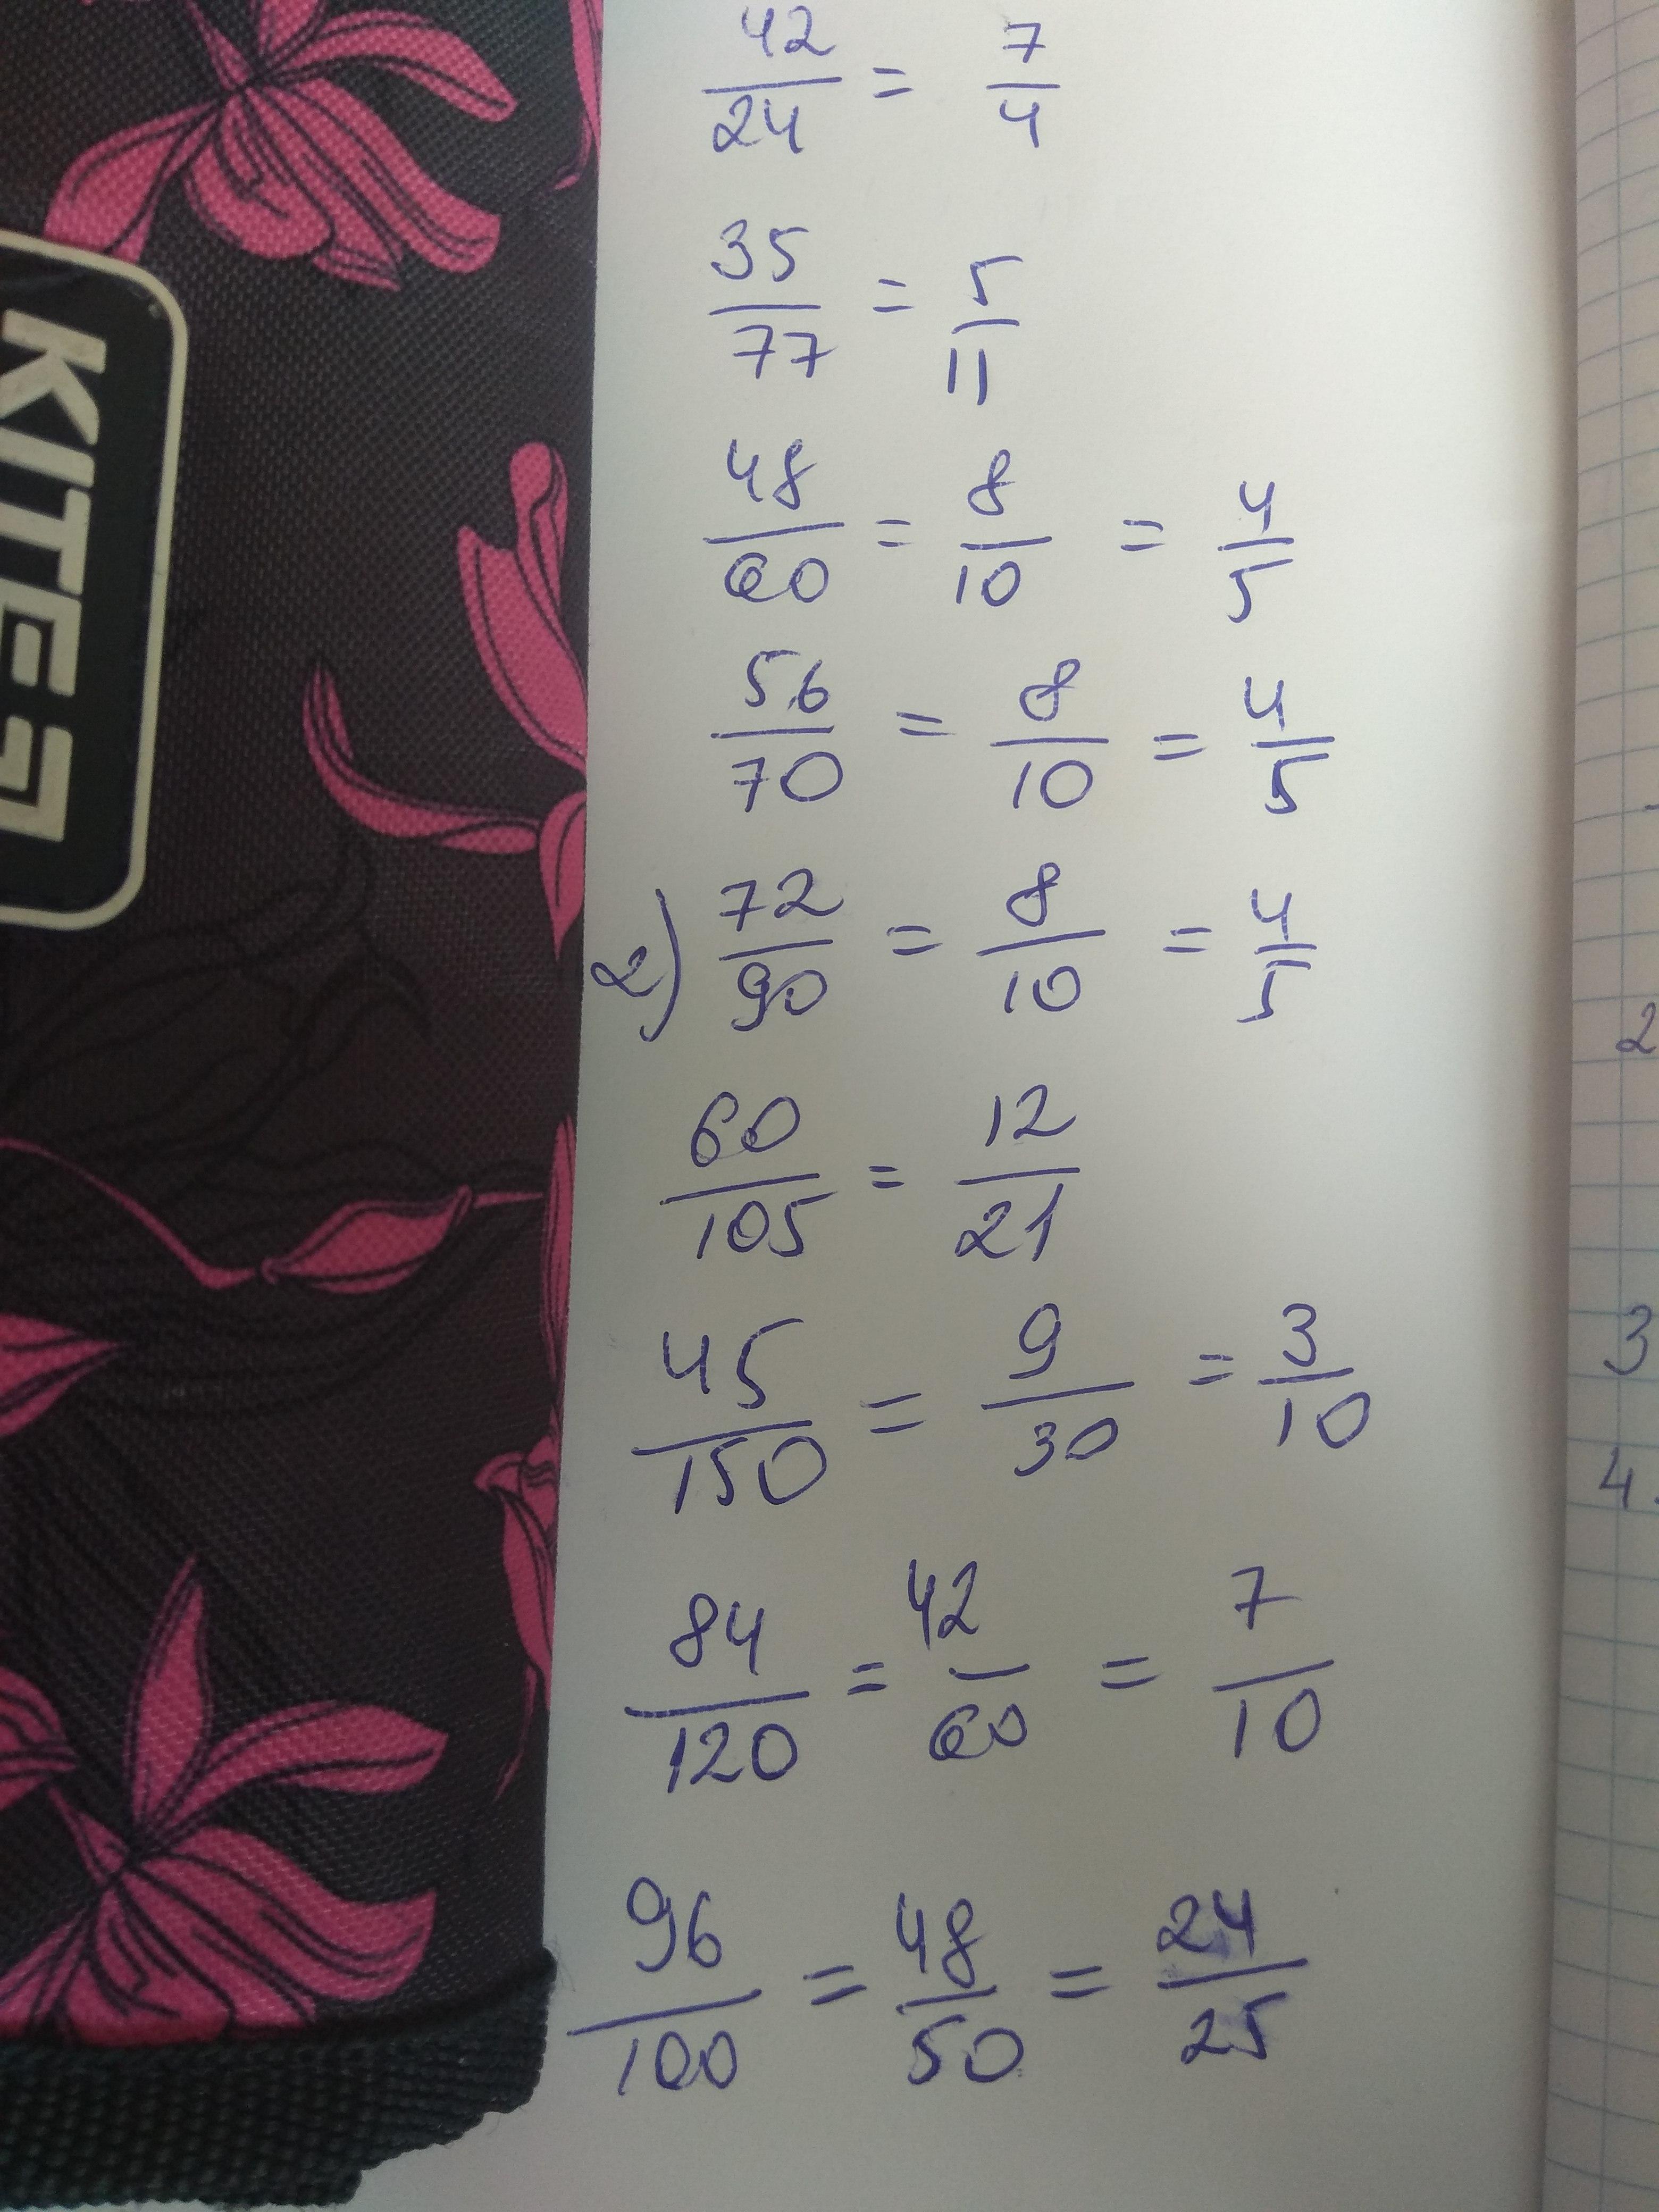 42/24 = 7/4
35/77 = 5/11
48/60 = 8/10 = 4/5
56/70 = 8/10 = 4/5
2) 72/90 = 8/10 = 4/5
60/105 = 12/21
45/150 = 9/30 = 3/10
84/120 = 42/60 = 7/10
96/100 = 48/50 = 24/25
2
3
4.